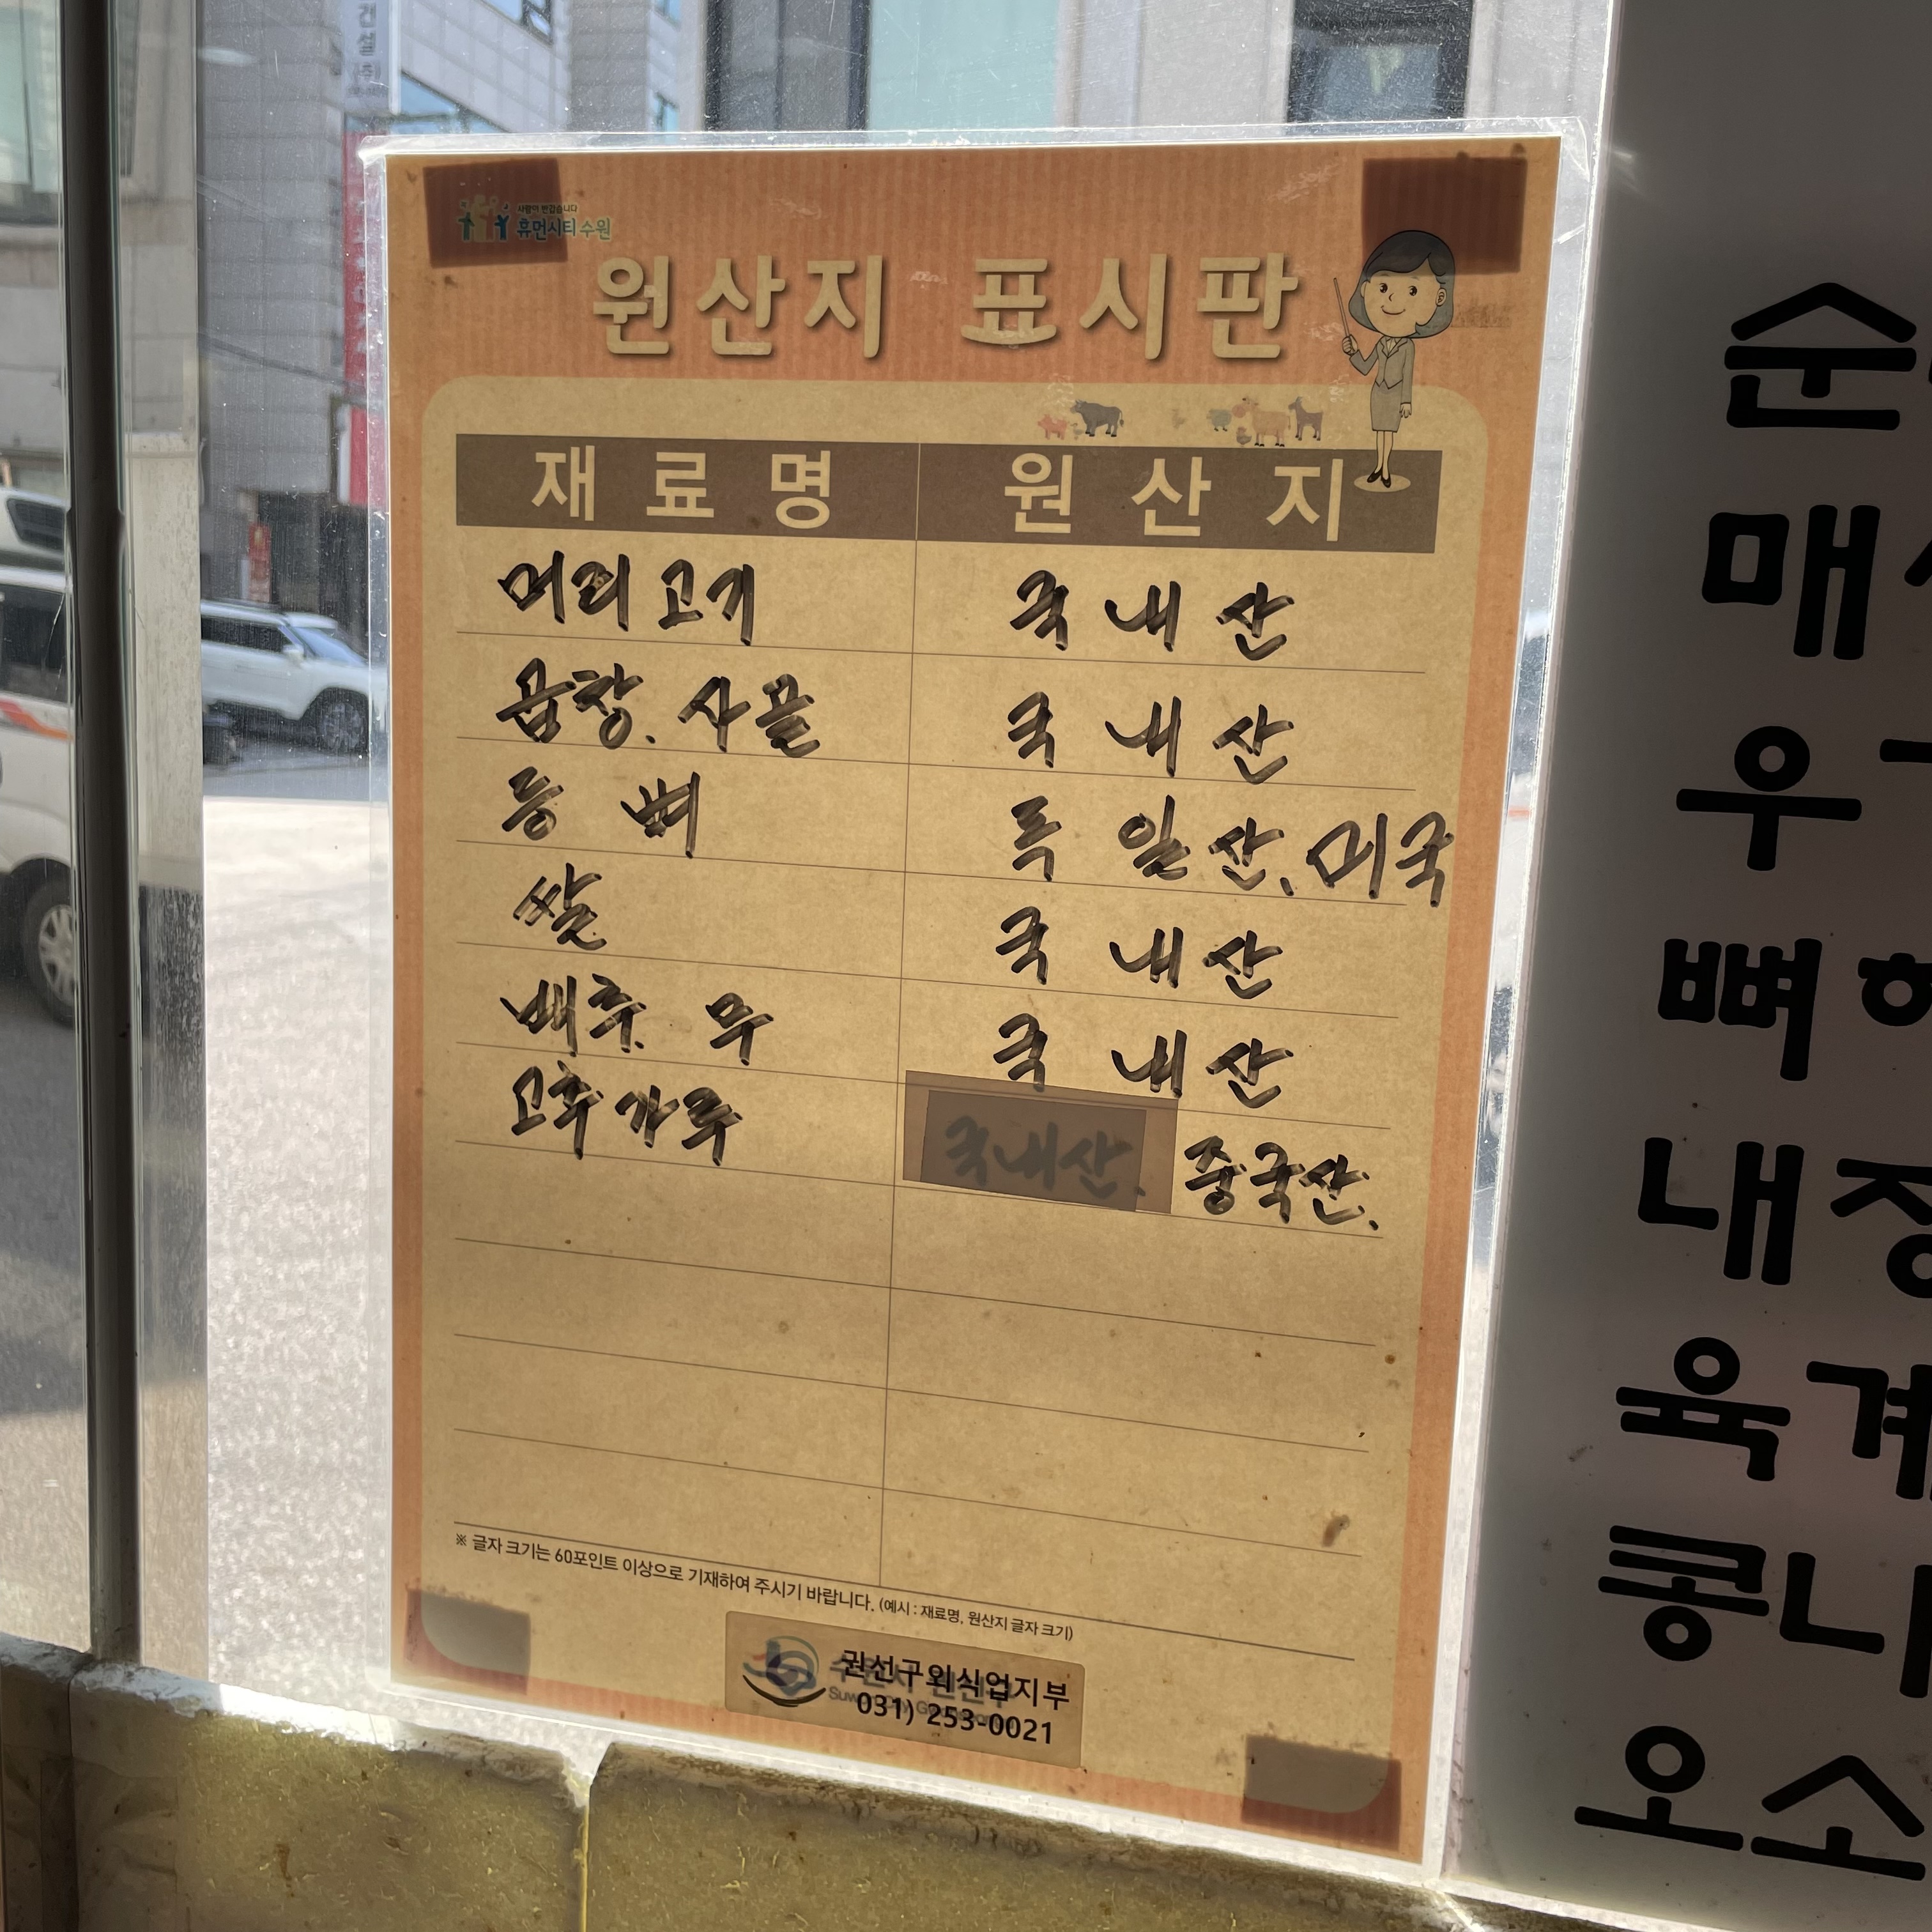 사람이 반갑습니다
휴먼시티 수원
원산지 표시판
재료명 원산지
머리고기 국내산
곱창. 사골 국내산
등뼈 독일산. 미국
쌀 국내산
배추. 무 국내산
고추가루 국내산. 중국산.
※ 글자 크기는 60포인트 이상으로 기재하여 주시기 바랍니다. (예시 : 재료명, 원산지 글자 크기)
권선구외식업지부
031) 253-0021
순
매
우
뼈
내
육계
콩나
오소